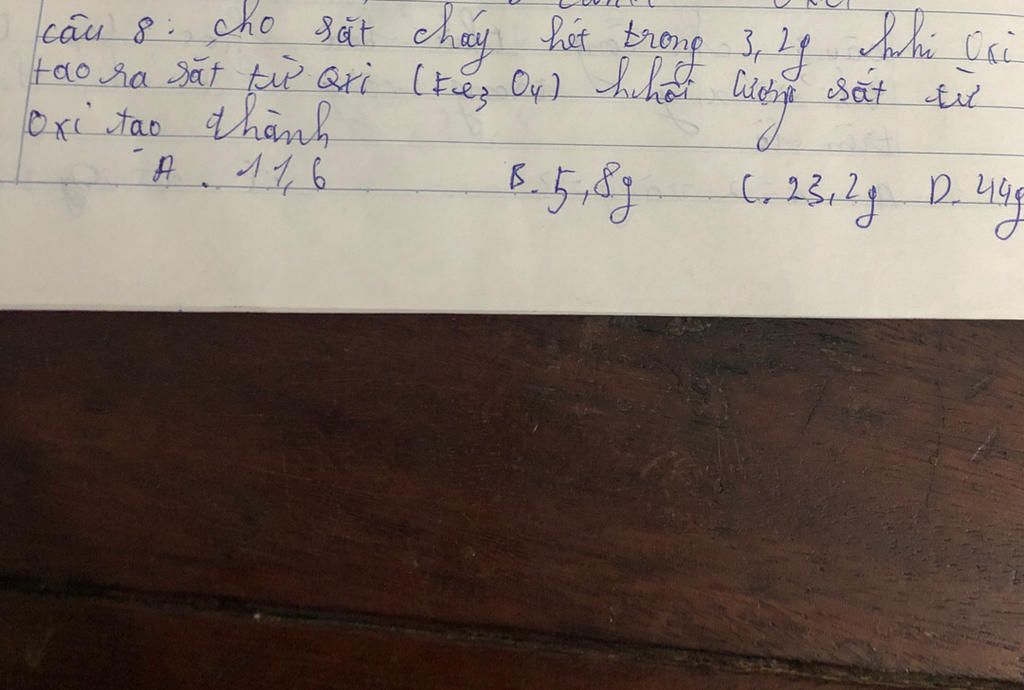 câu 8: cho sắt cháy hết trong 3,2g khi Oxi
tạo ra sắt từ Oxi (Fe3 O4) khối lượng sắt từ
Oxi tạo thành
A. 11,6 B. 5,8g C. 23,2g D. 44g